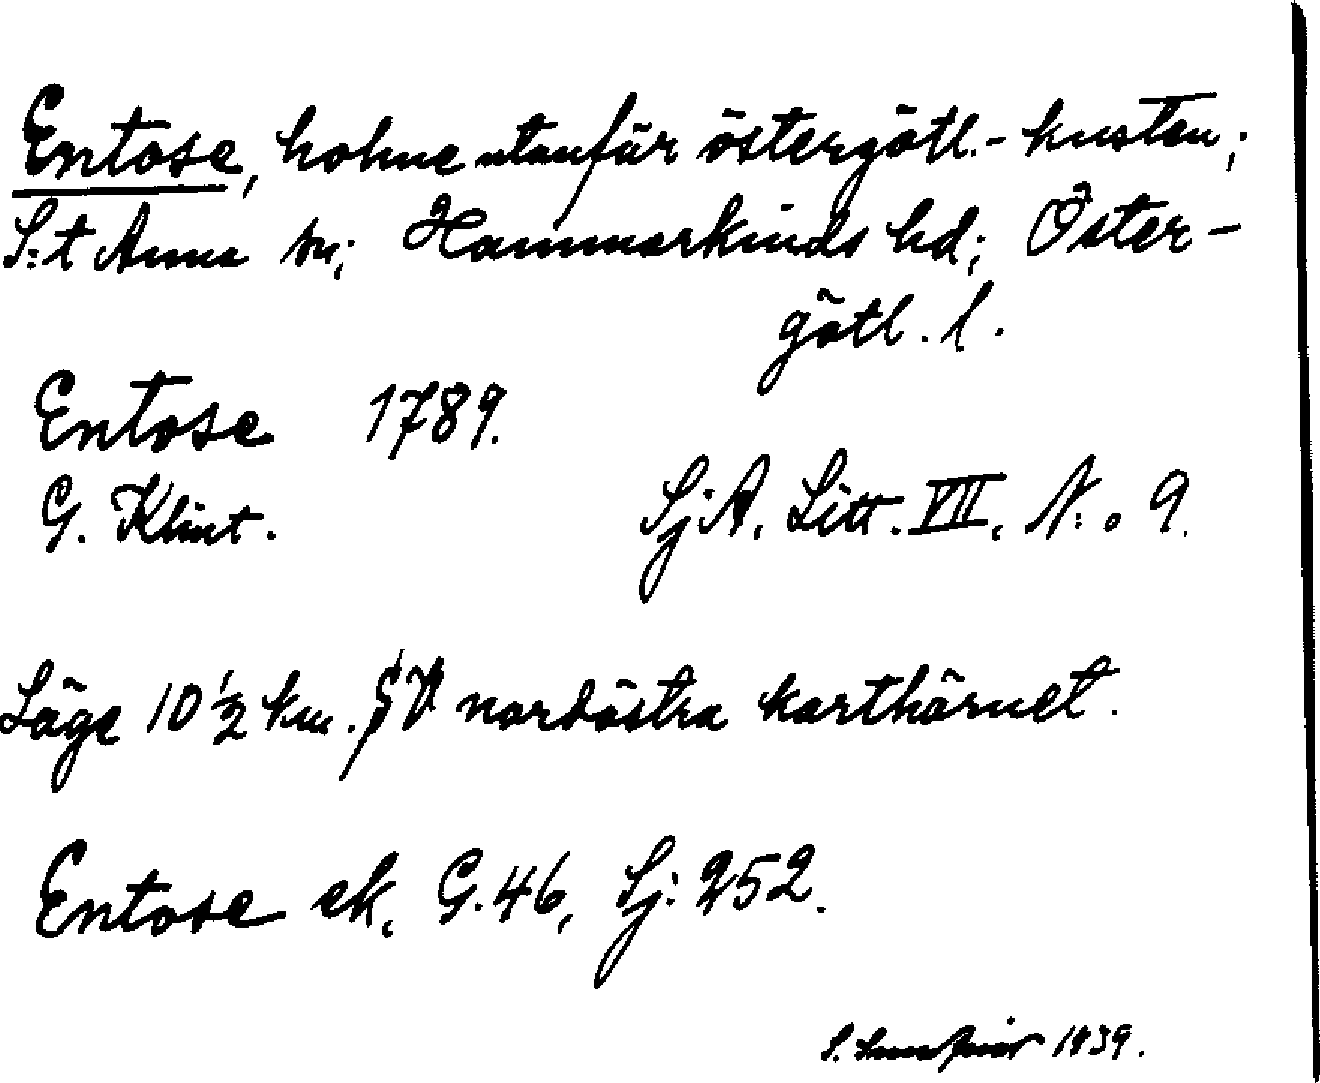 Entose, holme utanför östergötl.- kusten;
S:t Anna sn; Hammarkinds hd; Öster-
götl. l.
Entose 1789.
G. Klint. SjA. Litt. VII. N:o 9.
Läge 10 1/2 km. SV nordöstra karthörnet.
Entose ek. G. 46, Sj: 252.
S. 1939.